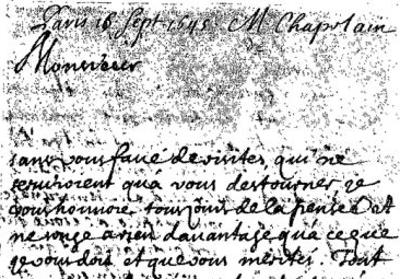 Paris 16 Sept 1645. Mr Chapelain
Monsieur
sans vous faire de visites qui ne
serviroient qua vous destourner, je
vous honnore tousjours de la pensee et
ne songe a rien davantage qua ce que
je vous dois et que vous merités. Tout